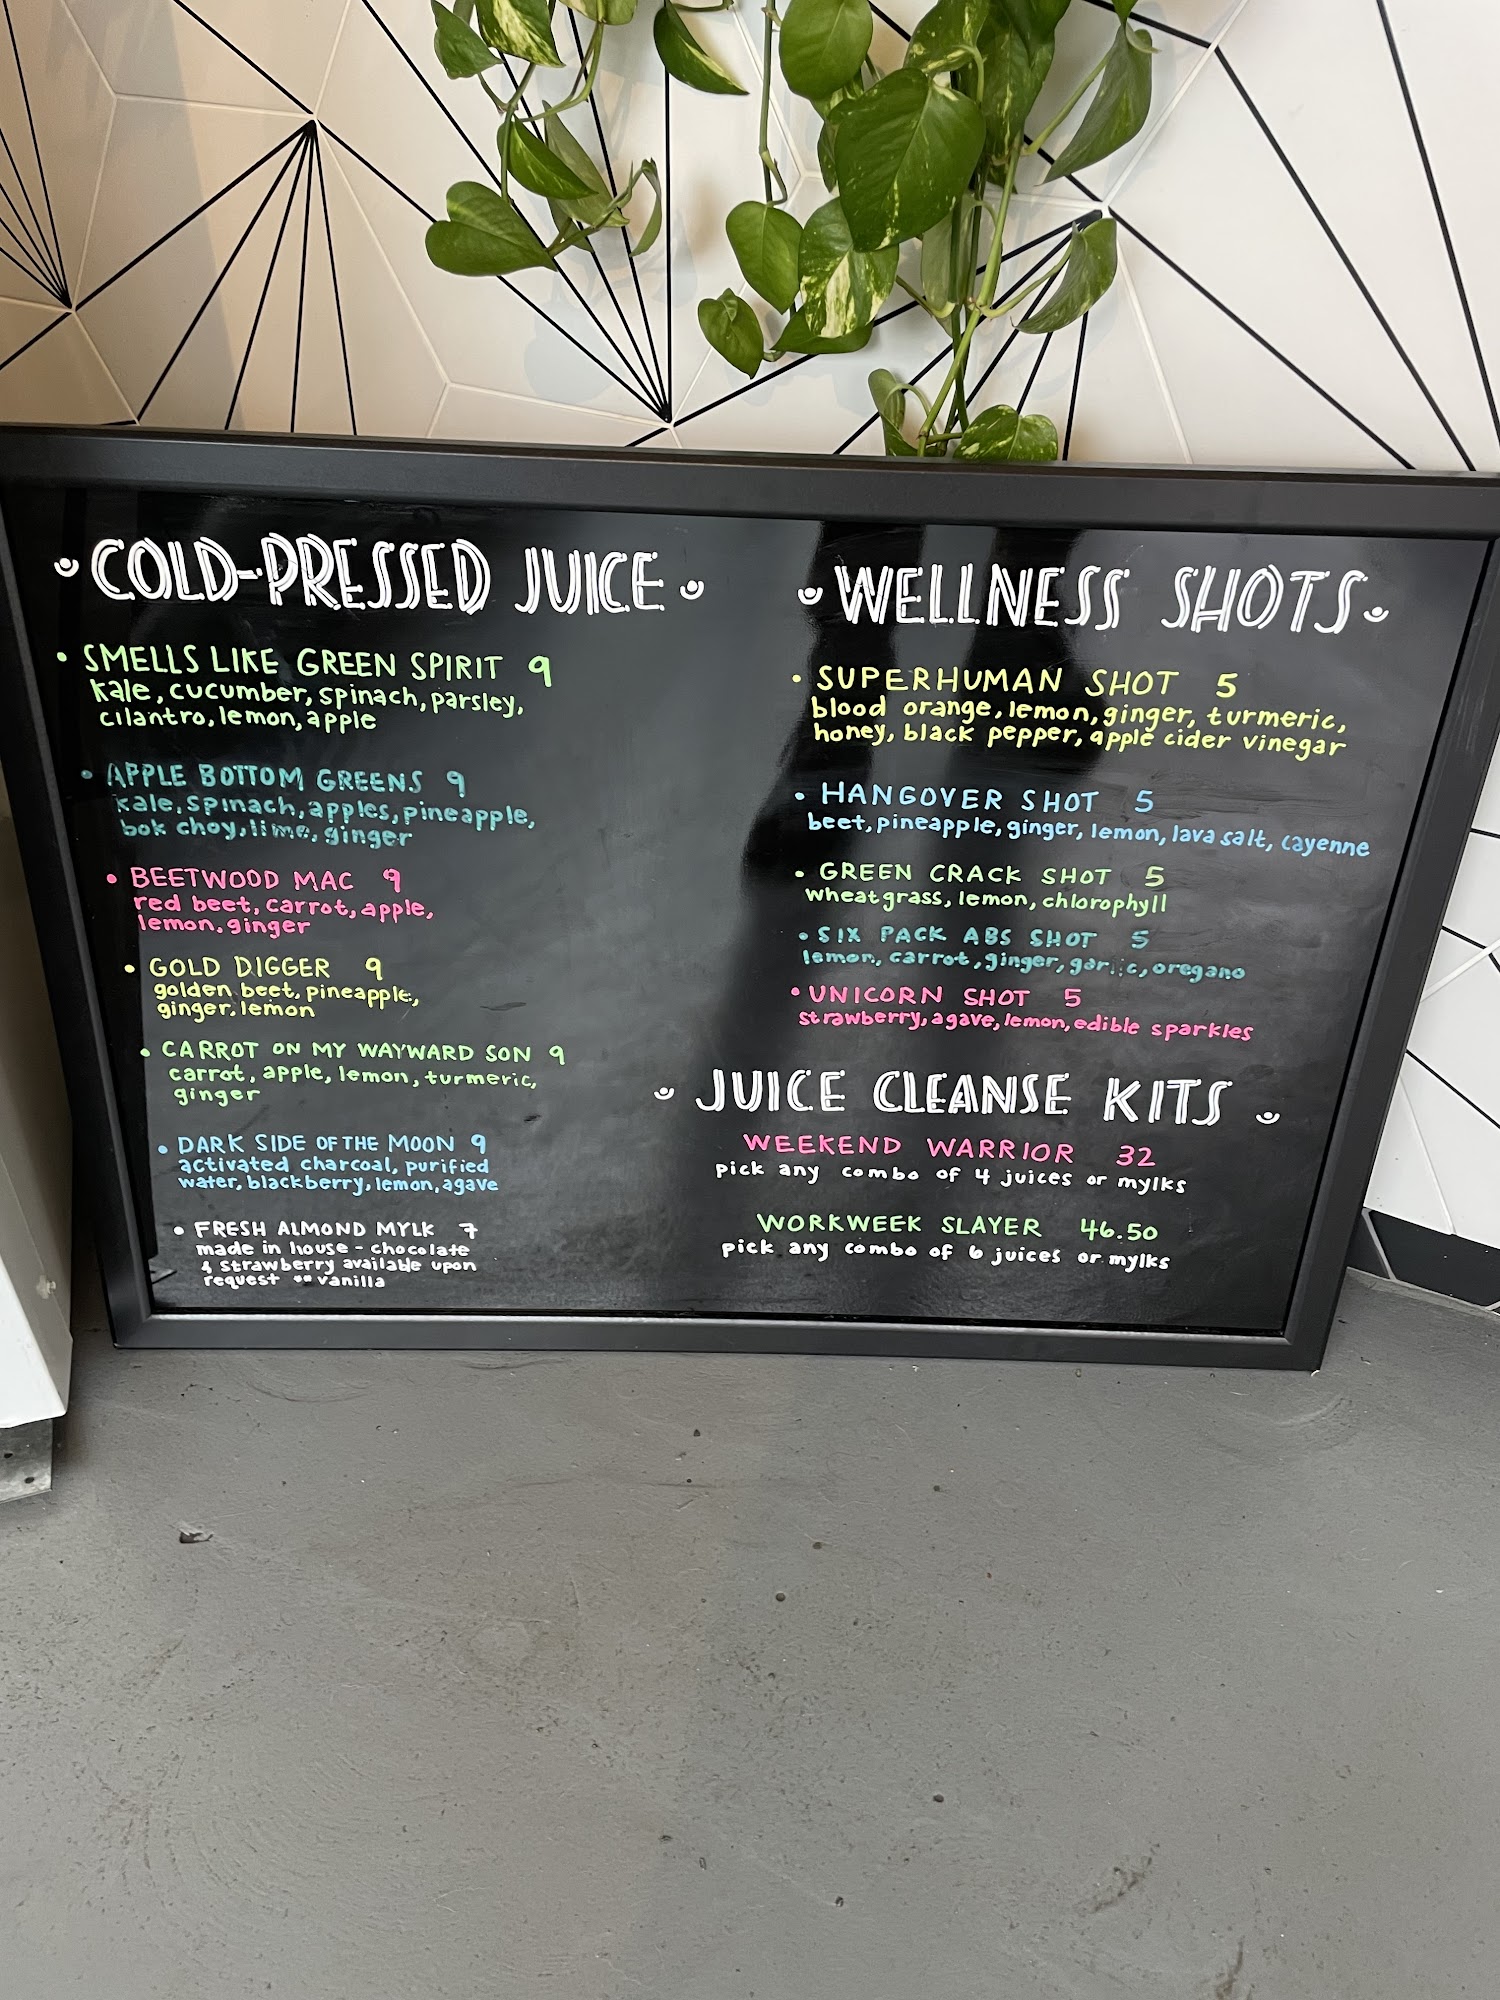 COLD-PRESSED JUICE
SMELLS LIKE GREEN SPIRIT 9
kale, cucumber, spinach, parsley,
cilantro, lemon, apple
APPLE BOTTOM GREENS 9
kale, spinach, apples, pineapple,
bok choy, lime, ginger
BEETWOOD MAC 9
red beet, carrot, apple,
lemon, ginger
GOLD DIGGER 9
golden beet, pineapple,
ginger, lemon
CARROT ON MY WAYWARD SON 9
carrot, apple, lemon, turmeric,
ginger
DARK SIDE OF THE MOON 9
activated charcoal, purified
water, blackberry, lemon, agave
FRESH ALMOND MYLK 7
made in house - chocolate
& strawberry available upon
request ** vanilla
WELLNESS SHOTS
SUPERHUMAN SHOT 5
blood orange, lemon, ginger, turmeric,
honey, black pepper, apple cider vinegar
HANGOVER SHOT 5
beet, pineapple, ginger, lemon, lava salt, cayenne
GREEN CRACK SHOT 5
wheatgrass, lemon, chlorophyll
SIX PACK ABS SHOT 5
lemon, carrot, ginger, garlic, oregano
UNICORN SHOT 5
strawberry, agave, lemon, edible sparkles
JUICE CLEANSE KITS
WEEKEND WARRIOR 32
pick any combo of 4 juices or mylks
WORKWEEK SLAYER 46.50
pick any combo of 6 juices or mylks